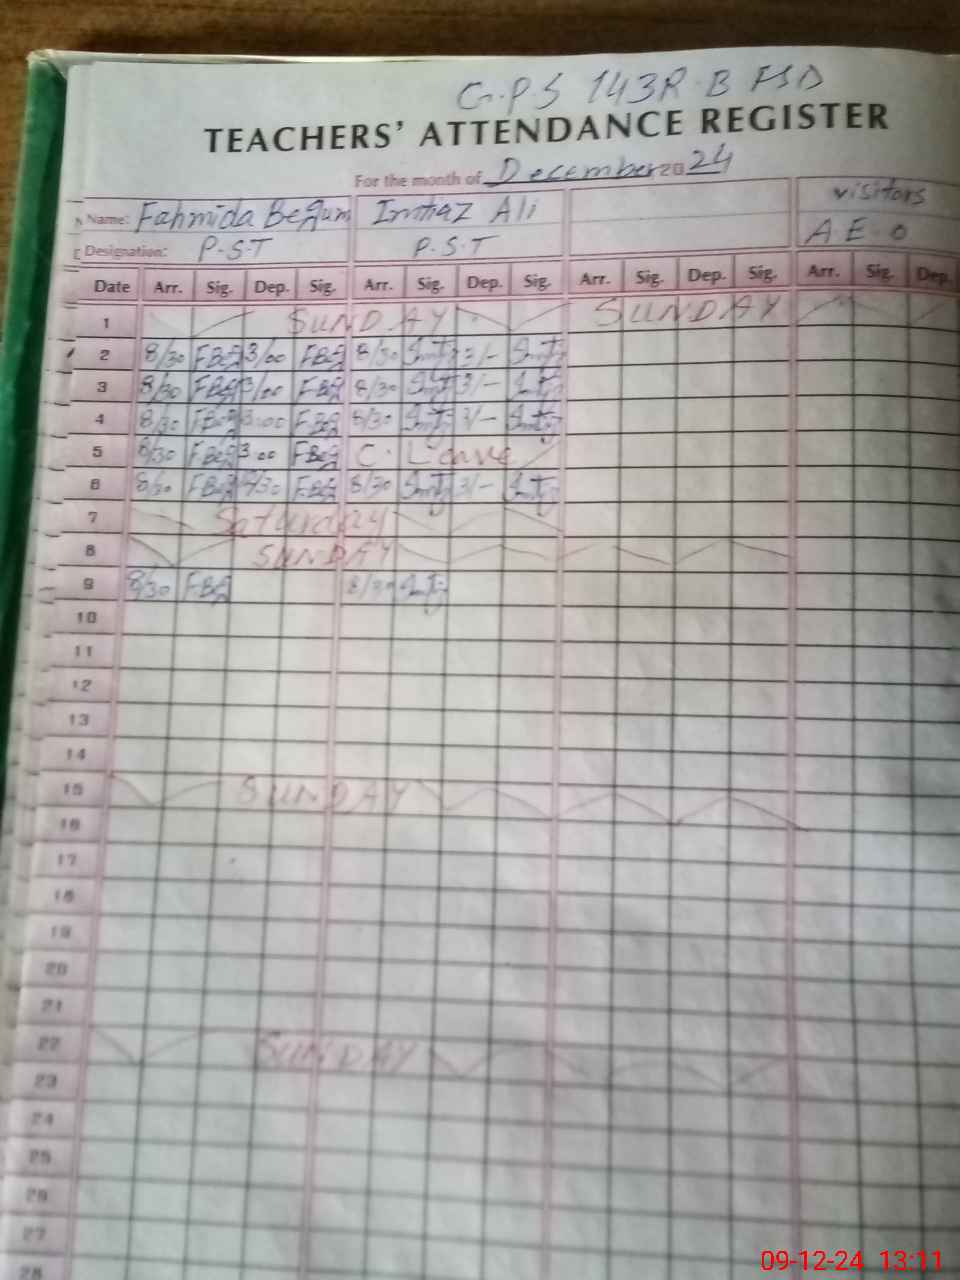 G.P.S 143R.B FSD
TEACHERS' ATTENDANCE REGISTER
For the month of December 2024
Name: Fahmida Begum Imtiaz Ali visitors
Designation: P.S.T P.S.T A.E.O
Date Arr. Sig. Dep. Sig. Arr. Sig. Dep. Sig. Arr. Sig. Dep. Sig. Arr. Sig. Dep
1 SUNDAY SUNDAY
2 8/30 FBeg 3/00 FBeg 8/30 3/-
3 8/30 FBeg 3/00 FBeg 8/30 3/-
4 8/30 FBeg 3:00 FBeg 8/30 3/-
5 8/30 FBeg 3:00 FBeg C. Leave
6 8/30 FBeg FBeg 8/30 3/-
7 Saturday
8 SUNDAY
9 8/30 FBeg 8/30
10
11
12
13
14
15 SUNDAY
16
17
18
19
20
21
22 SUNDAY
23
24
25
26
27
28
09-12-24 13:11